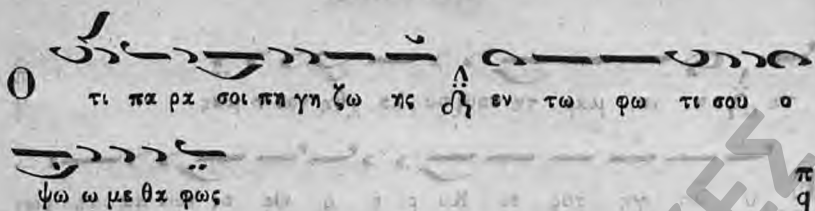 Ο τι πα ρα σοι πη γη ζω ης εν τω φω τι σου ο
ψω ω με θα φως π
q